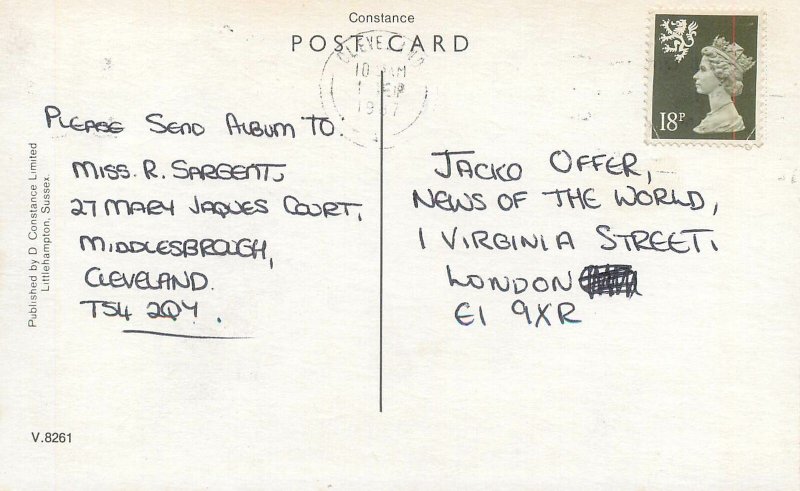 Constance
POSTCARD
CLEVELAND
10 AM
1 SEP
1987
18P
PLEASE SEND ALBUM TO.
MISS. R. SARGENT,
27 MARY JAQUES COURT,
MIDDLESBROUGH,
CLEVELAND.
TS4 2QY.
JACKO OFFER,
NEWS OF THE WORLD,
1 VIRGINIA STREET,
LONDON
E1 9XR
Published by D Constance Limited
Littlehampton, Sussex.
V.8261